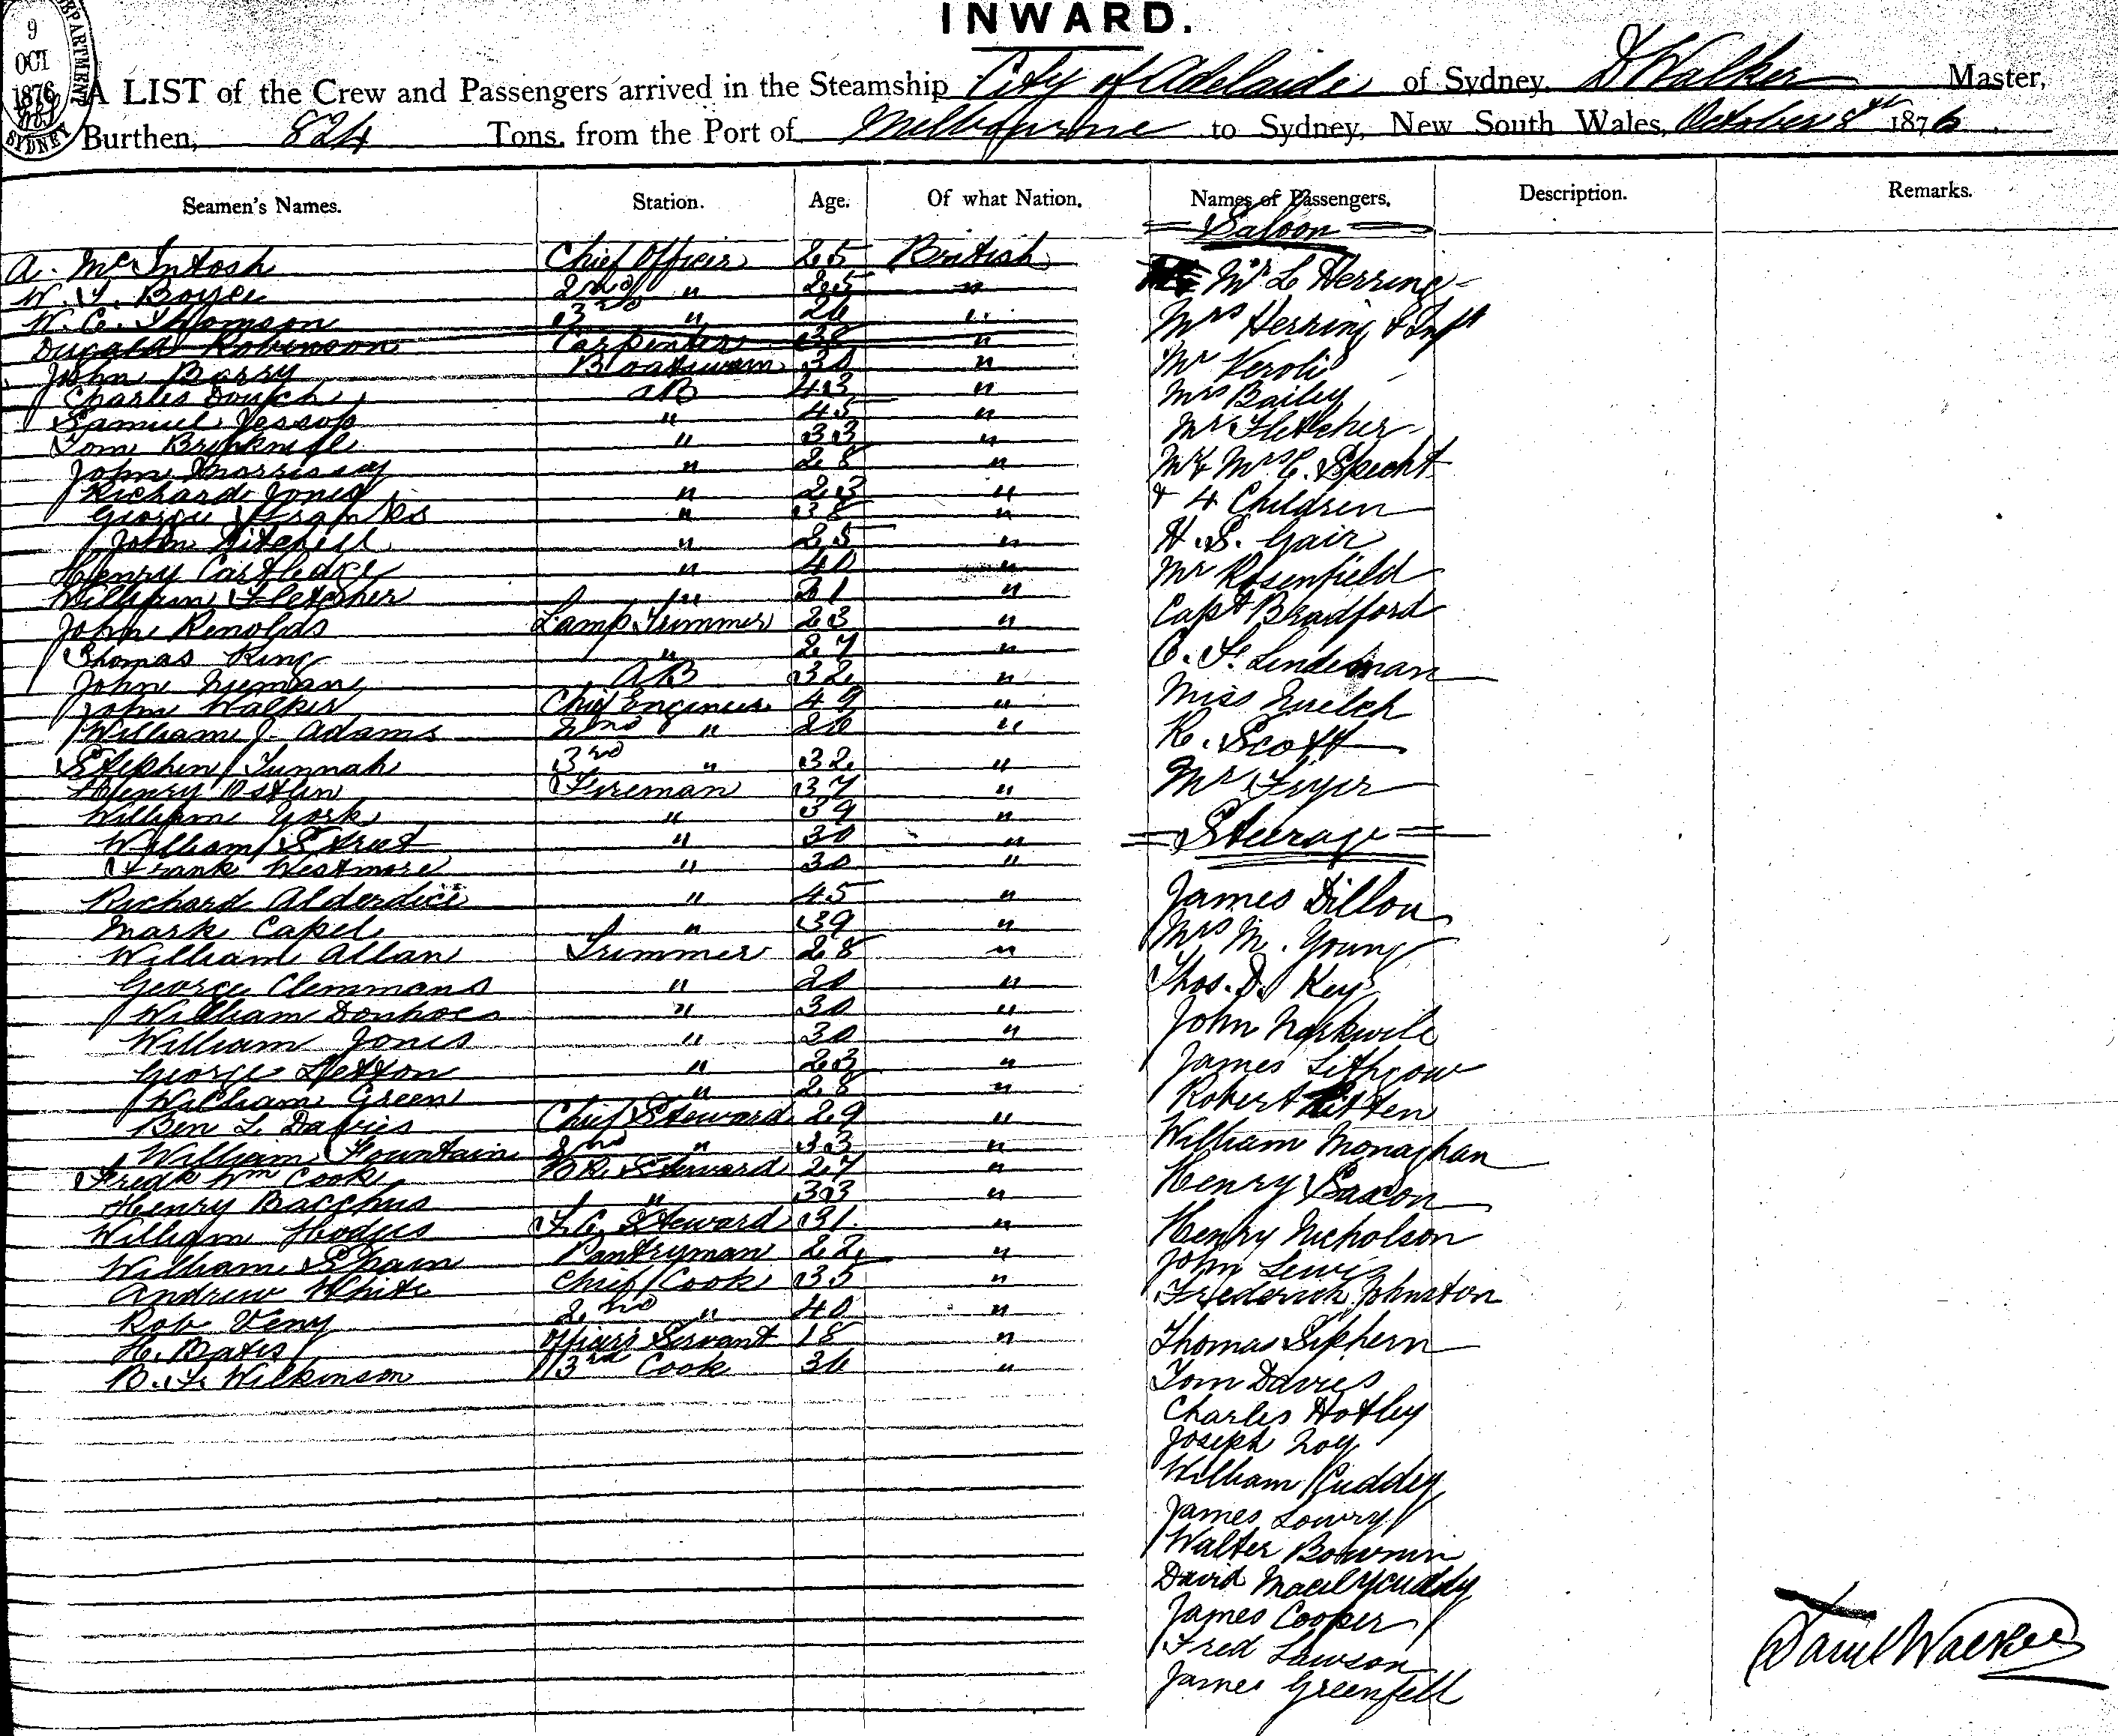 9
OCT
1876
SYDNEY
INWARD.
A LIST of the Crew and Passengers arrived in the Steamship City of Adelaide of Sydney, D Walker Master,
Burthen, 824 Tons, from the Port of Melbourne to Sydney, New South Wales, October 8th 1876
Seamen's Names. Station. Age. Of what Nation. Names of Passengers. Description. Remarks.
A. McIntosh Chief Officer 25 British
W. Y. Boyce 2nd " 25 "
W. C. Thomson 3rd " 26 "
Dugald Robinson Carpenter 38 "
John Barry Boatswain 30 "
Charles Douch AB 43 "
Samuel Jessop " 45 "
Tom " 33 "
John Morrissay " 28 "
Richard Jones " 23 "
George Franks " 38 "
John Mitchell " 25 "
Henry Cartledge " 40 "
William Fletcher " 21 "
John Renolds Lamp Trimmer 23 "
Thomas King " 27 "
John Nieman AB 32 "
John Walker Chief Engineer 49 "
William J. Adams 2nd " 26 "
Stephen Tunnah 3rd " 32 "
Henry Ostlin Fireman 37 "
William York " 39 "
William Street " 30 "
Frank Westmore " 30 "
Richard Alderdice " 45 "
Mark Capel " 39 "
William Allan Trimmer 28 "
George Clemmans " 20 "
William Donhoes " 30 "
William Jones " 30 "
George Letton " 23 "
William Green " 28 "
Ben L Davies Chief Steward 29 "
William Fountain 2nd " 33 "
Fredk Wm Cook BR. Steward 27 "
Henry Bacchus " 33 "
William Hodges F.C. Steward 31 "
William Spain Pantryman 22 "
Andrew White Chief Cook 35 "
Rob Veny 2nd " 40 "
H. Bates Officers Servant 18 "
B. F. Wilkinson 3rd Cook 36 "
Saloon
Mr L Herring
Mrs Herring & Inft
Mr Veroli
Mrs Bailey
Mr Fletcher
Mr & Mrs C. Specht
& 4 Children
H. S. Gair
Mr Rosenfield
Capt Bradford
C. F. Lindeman
Miss Quelch
R. Scott
Mr Fryer
Steerage
James Dillon
Mrs M. Young
Thos. D. Key
John
James Lithgow
Robert Litten
William Monaghan
Henry Saxon
Henry Nicholson
John Lewis
Frederick Johnston
Thomas Siphern
Tom Davies
Charles Hotley
Joseph Noy
William Cuddey
James Lowry
Walter Bowmin
David
James Cooper
Fred Lawson
James Greenfell
Daniel Walker